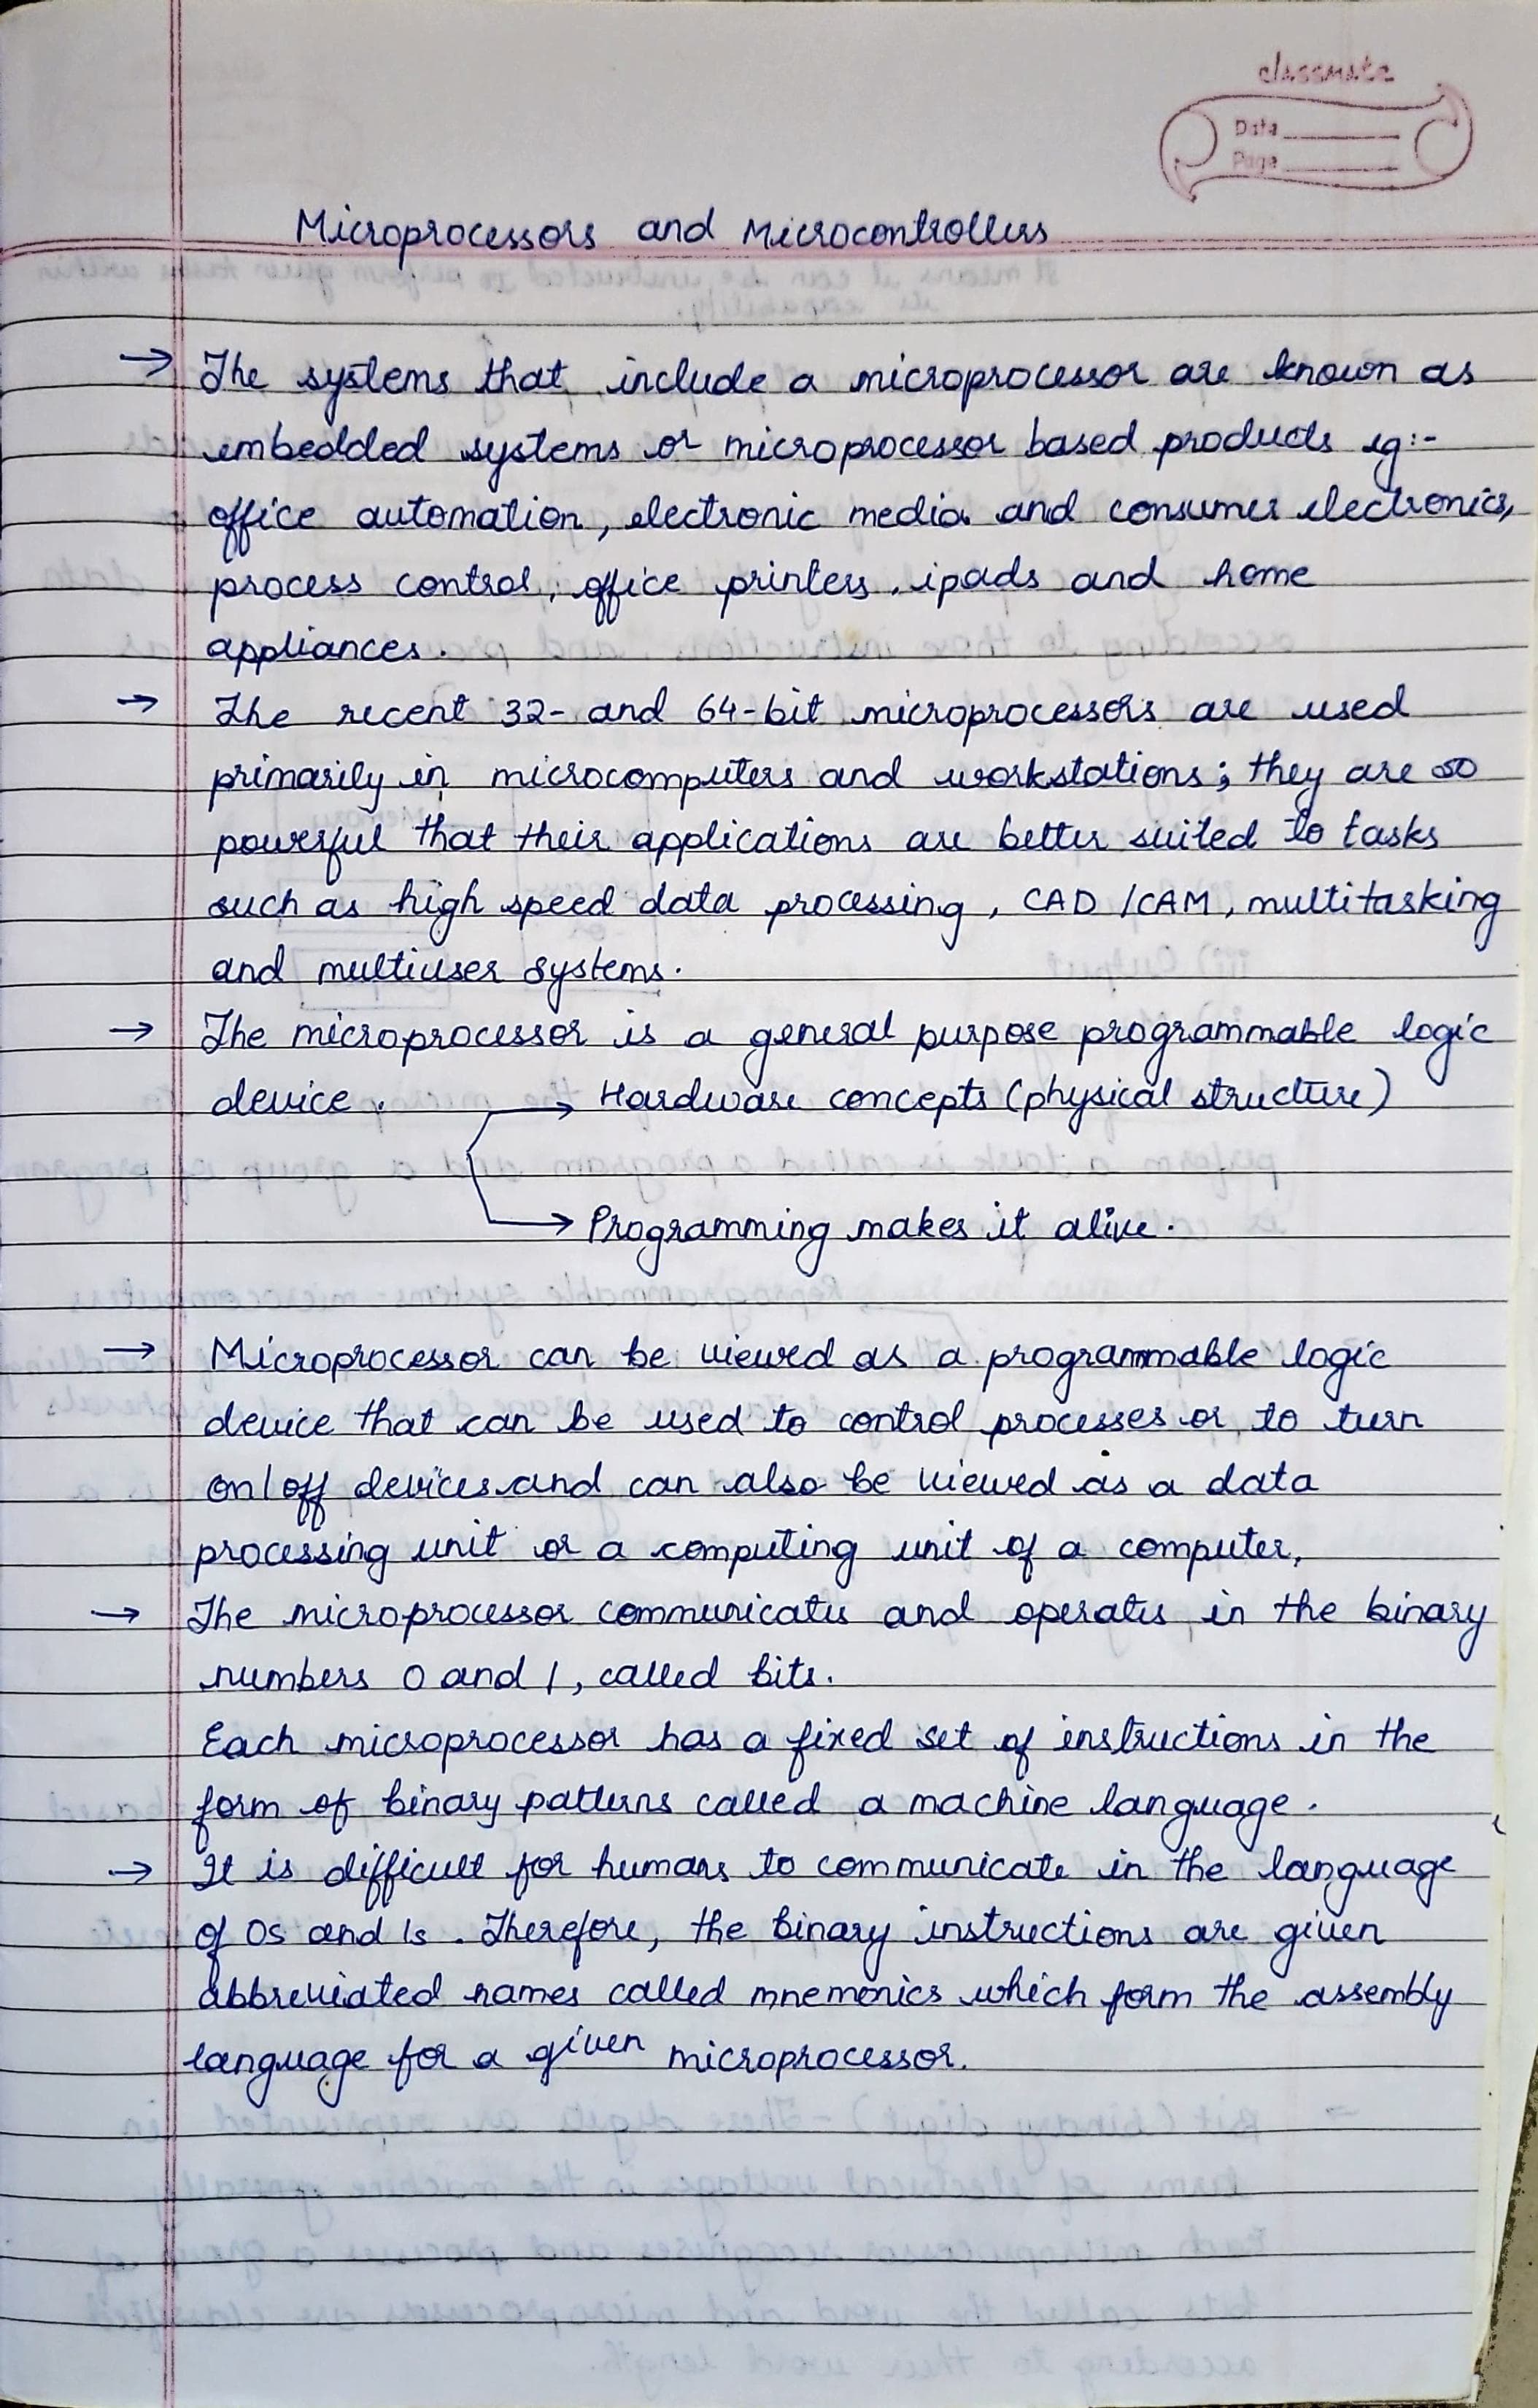 classmate
Date
Page
Microprocessors and Microcontrollers
→ The systems that include a microprocessor are known as
embedded systems or microprocessor based products eg:-
office automation, electronic media and consumer electronics,
process control, office printers, ipads and home
appliances.
→ The recent 32- and 64-bit microprocessors are used
primarily in microcomputers and workstations; they are so
powerful that their applications are better suited to tasks
such as high speed data processing, CAD/CAM, multitasking
and multiuser systems.
→ The microprocessor is a general purpose programmable logic
device. → Hardware concepts (physical structure)
→ Programming makes it alive.
→ Microprocessor can be viewed as a programmable logic
device that can be used to control processes or to turn
on/off devices and can also be viewed as a data
processing unit or a computing unit of a computer,
→ The microprocessor communicates and operates in the binary
numbers 0 and 1, called bits.
Each microprocessor has a fixed set of instructions in the
form of binary patterns called a machine language.
→ It is difficult for humans to communicate in the language
of 0s and 1s. Therefore, the binary instructions are given
abbreviated names called mnemonics which form the assembly
language for a given microprocessor.